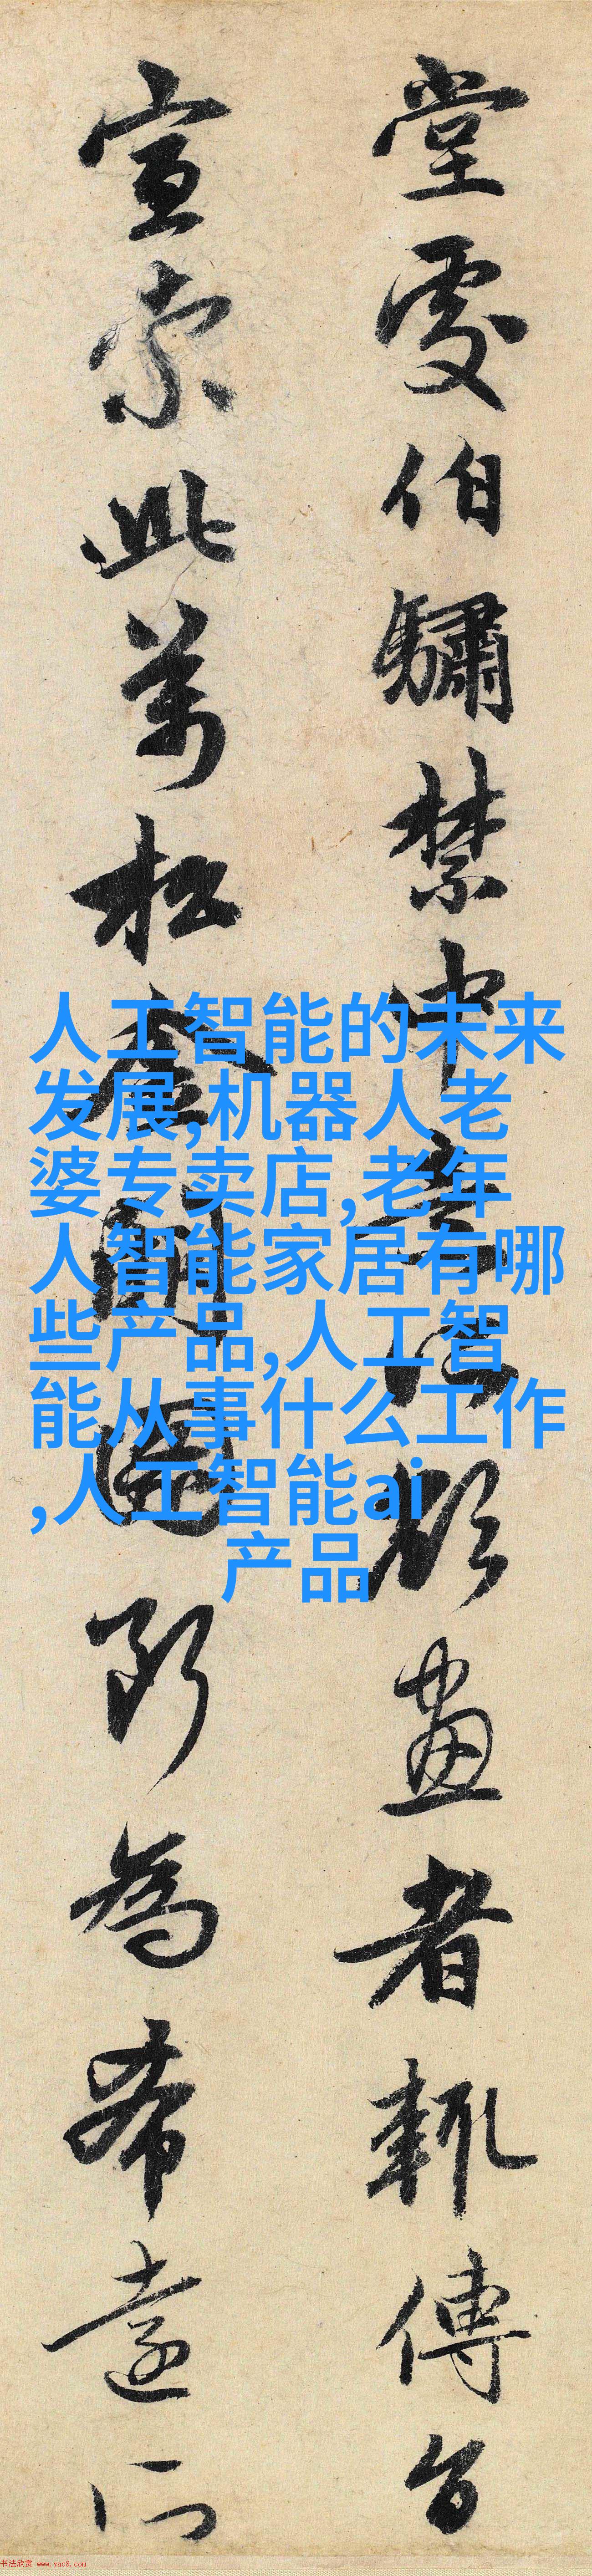 堂处伯驌禁中
画者辄传台
宣索此万松金阙图
所为希远所
人工智能的未来
发展,机器人老
婆专卖店,老年
人智能家居有哪
些产品,人工智
能从事什么工作
,人工智能ai
产品
书法欣赏 www.yac8.com